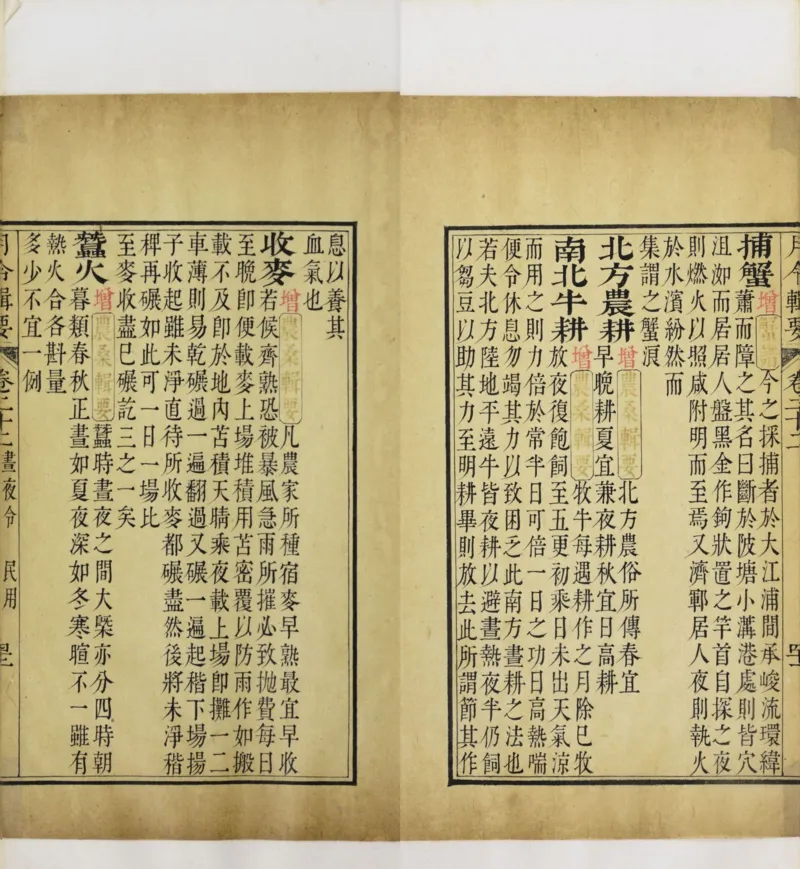 月令輯要 卷二十二
捕蟹增蟹譜今之採捕者於大江浦間承峻流環緯
蕭而障之其名曰斷於陂塘小溝港處則皆穴
沮洳而居居人盤黑金作鉤狀置之竿首自探之夜
則燃火以照咸附明而至焉又濟鄆居人夜則執火
於水濱紛然而
集謂之蟹浪
北方農耕增農桑輯要北方農俗所傳春宜
早晚耕夏宜兼夜耕秋宜日高耕
南北牛耕增農桑輯要牧牛每遇耕作之月除已牧
放夜復飽飼至五更初乘日未出天氣涼
而用之則力倍於常半日可倍一日之功日高熱喘
便令休息勿竭其力以致困乏此南方晝耕之法也
若夫北方陸地平遠牛皆夜耕以避晝熱夜半仍飼
以芻豆以助其力至明耕畢則放去此所謂節其作
息以養其
血氣也
收麥增農桑輯要凡農家所種宿麥早熟最宜早收
若候齊熟恐被暴風急雨所摧必致拋費每日
至晚即便載麥上場堆積用苫密覆以防雨作如搬
載不及即於地內苫積天晴乘夜載上場即攤一二
車薄則易乾碾過一遍翻過又碾一遍起稭下場揚
子收起雖未淨直待所收麥都碾盡然後將未淨稭
稈再碾如此可一日一場比
至麥收盡已碾訖三之一矣
蠶火增農桑輯要蠶時晝夜之間大槩亦分四時朝
暮類春秋正晝如夏夜深如冬寒暄不一雖有
熱火合各斟量
多少不宜一例
月令輯要 卷二十二 晝夜令 民用